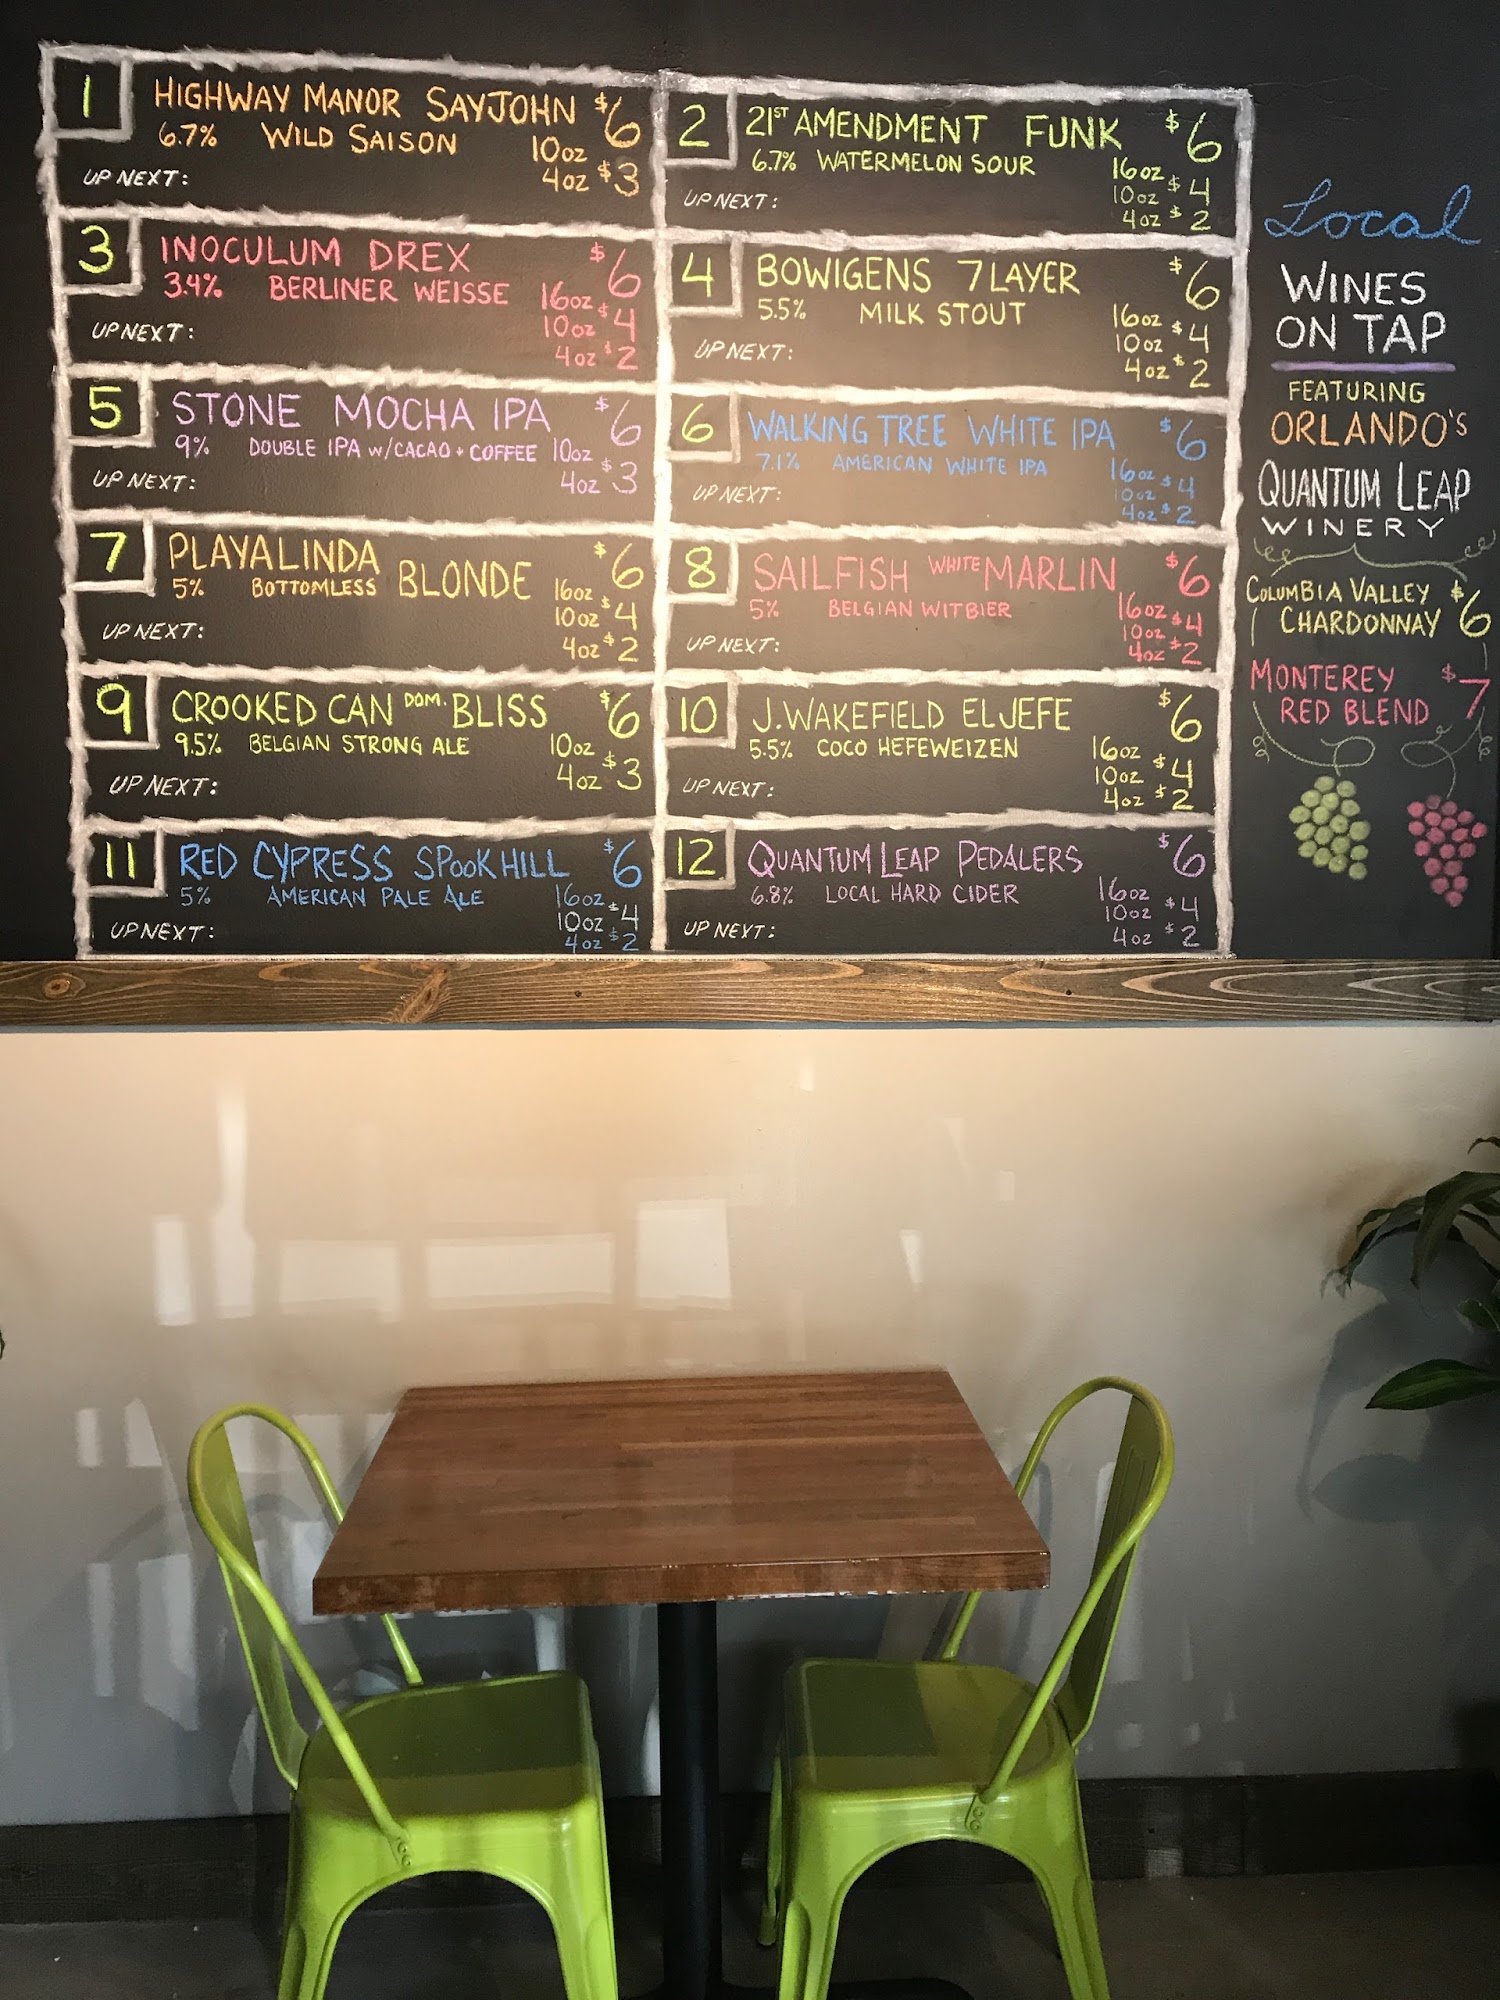 1
HIGHWAY MANOR SAYJOHN $6
6.7% WILD SAISON 10oz
4oz $3
UP NEXT:
2
21ST AMENDMENT FUNK $6
6.7% WATERMELON SOUR 16oz
10oz $4
4oz $2
UP NEXT:
3
INOCULUM DREX $6
3.4% BERLINER WEISSE 16oz
10oz $4
4oz $2
UP NEXT:
4
BOWIGENS 7 LAYER $6
5.5% MILK STOUT 16oz
10oz $4
4oz $2
UP NEXT:
5
STONE MOCHA IPA $6
9% DOUBLE IPA W/CACAO + COFFEE 10oz
4oz $3
UP NEXT:
6
WALKING TREE WHITE IPA $6
7.1% AMERICAN WHITE IPA 16oz
10oz $4
4oz $2
UP NEXT:
7
PLAYALINDA $6
5% BOTTOMLESS BLONDE 16oz
10oz $4
4oz $2
UP NEXT:
8
SAILFISH WHITE MARLIN $6
5% BELGIAN WITBIER 16oz
10oz $4
4oz $2
UP NEXT:
9
CROOKED CAN DOM. BLISS $6
9.5% BELGIAN STRONG ALE 10oz
4oz $3
UP NEXT:
10
J.WAKEFIELD EL JEFE $6
5.5% COCO HEFEWEIZEN 16oz
10oz $4
4oz $2
UP NEXT:
11
RED CYPRESS SPOOK HILL $6
5% AMERICAN PALE ALE 16oz
10oz $4
4oz $2
UP NEXT:
12
QUANTUM LEAP PEDALERS $6
6.8% LOCAL HARD CIDER 16oz
10oz $4
4oz $2
UP NEXT:
Local
WINES
ON TAP
FEATURING
ORLANDO'S
QUANTUM LEAP
WINERY
COLUMBIA VALLEY $6
CHARDONNAY
MONTEREY $7
RED BLEND